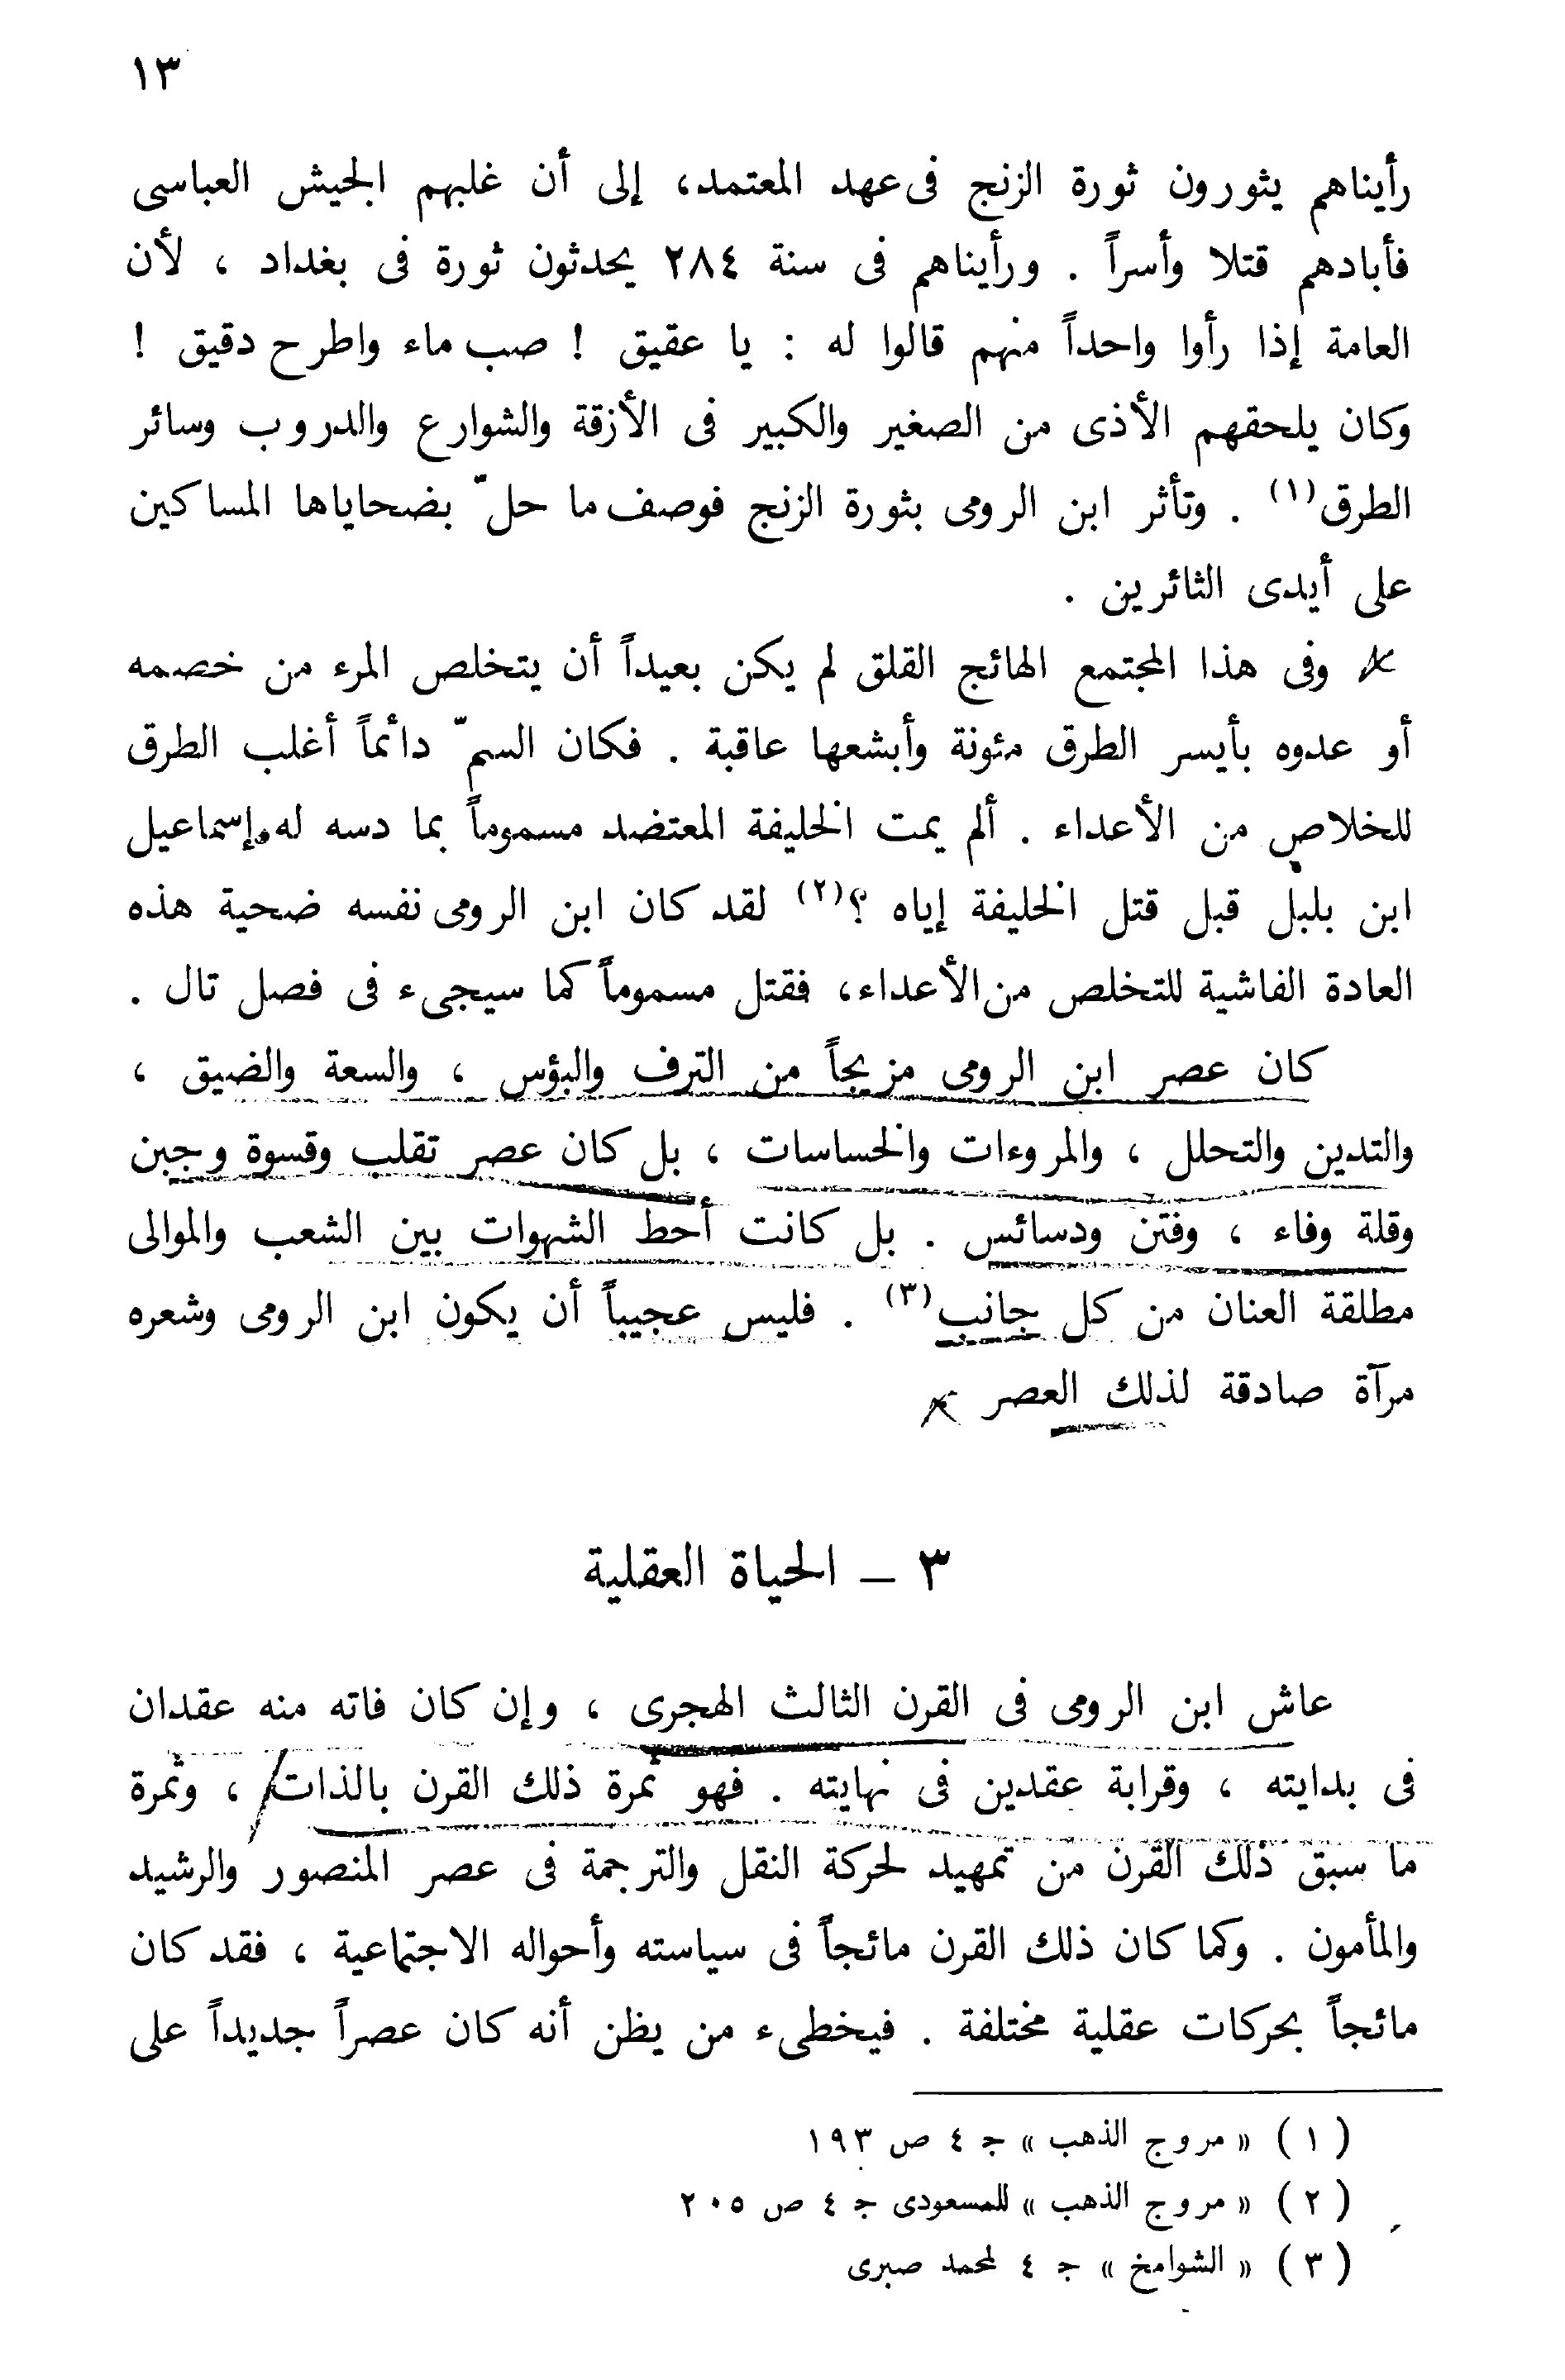 ١٣
رأيناهم يثورون ثورة الزنج فى عهد المعتمد، إلى أن غلبهم الجيش العباسى
فأبادهم قتلا وأسراً . ورأيناهم فى سنة ٢٨٤ يحدثون ثورة فى بغداد ، لأن
العامة إذا رأوا واحداً منهم قالوا له : يا عقيق ! صب ماء واطرح دقيق !
وكان يلحقهم الأذى من الصغير والكبير فى الأزقة والشوارع والدروب وسائر
الطرق(١) . وتأثر ابن الرومى بثورة الزنج فوصف ما حلّ بضحاياها المساكين
على أيدى الثائرين .
وفى هذا المجتمع الهائج القلق لم يكن بعيداً أن يتخلص المرء من خصمه
أو عدوه بأيسر الطرق مئونة وأبشعها عاقبة . فكان السمّ دائماً أغلب الطرق
للخلاص من الأعداء . ألم يمت الخليفة المعتضد مسموماً بما دسه له إسماعيل
ابن بلبل قبل قتل الخليفة إياه ؟(٢) لقد كان ابن الرومى نفسه ضحية هذه
العادة الفاشية للتخلص من الأعداء، فقتل مسموماً كما سيجىء فى فصل تال .
كان عصر ابن الرومى مزيجاً من الترف والبؤس ، والسعة والضيق ،
والتدين والتحلل ، والمروءات والخساسات ، بل كان عصر تقلب وقسوة وجبن
وقلة وفاء ، وفتن ودسائس . بل كانت أحط الشهوات بين الشعب والموالى
مطلقة العنان من كل جانب(٣) . فليس عجيباً أن يكون ابن الرومى وشعره
مرآة صادقة لذلك العصر
٣ – الحياة العقلية
عاش ابن الرومى فى القرن الثالث الهجرى ، وإن كان فاته منه عقدان
فى بدايته ، وقرابة عقدين فى نهايته . فهو ثمرة ذلك القرن بالذات ، وثمرة
ما سبق ذلك القرن من تمهيد لحركة النقل والترجمة فى عصر المنصور والرشيد
والمأمون . وكما كان ذلك القرن مائجاً فى سياسته وأحواله الاجتماعية ، فقد كان
مائجاً بحركات عقلية مختلفة . فيخطىء من يظن أنه كان عصراً جديداً على
(١) « مروج الذهب » ج ٤ ص ١٩٣
(٢) « مروج الذهب » للمسعودى ج ٤ ص ٢٠٥
(٣) « الشوامخ » ج ٤ لمحمد صبرى